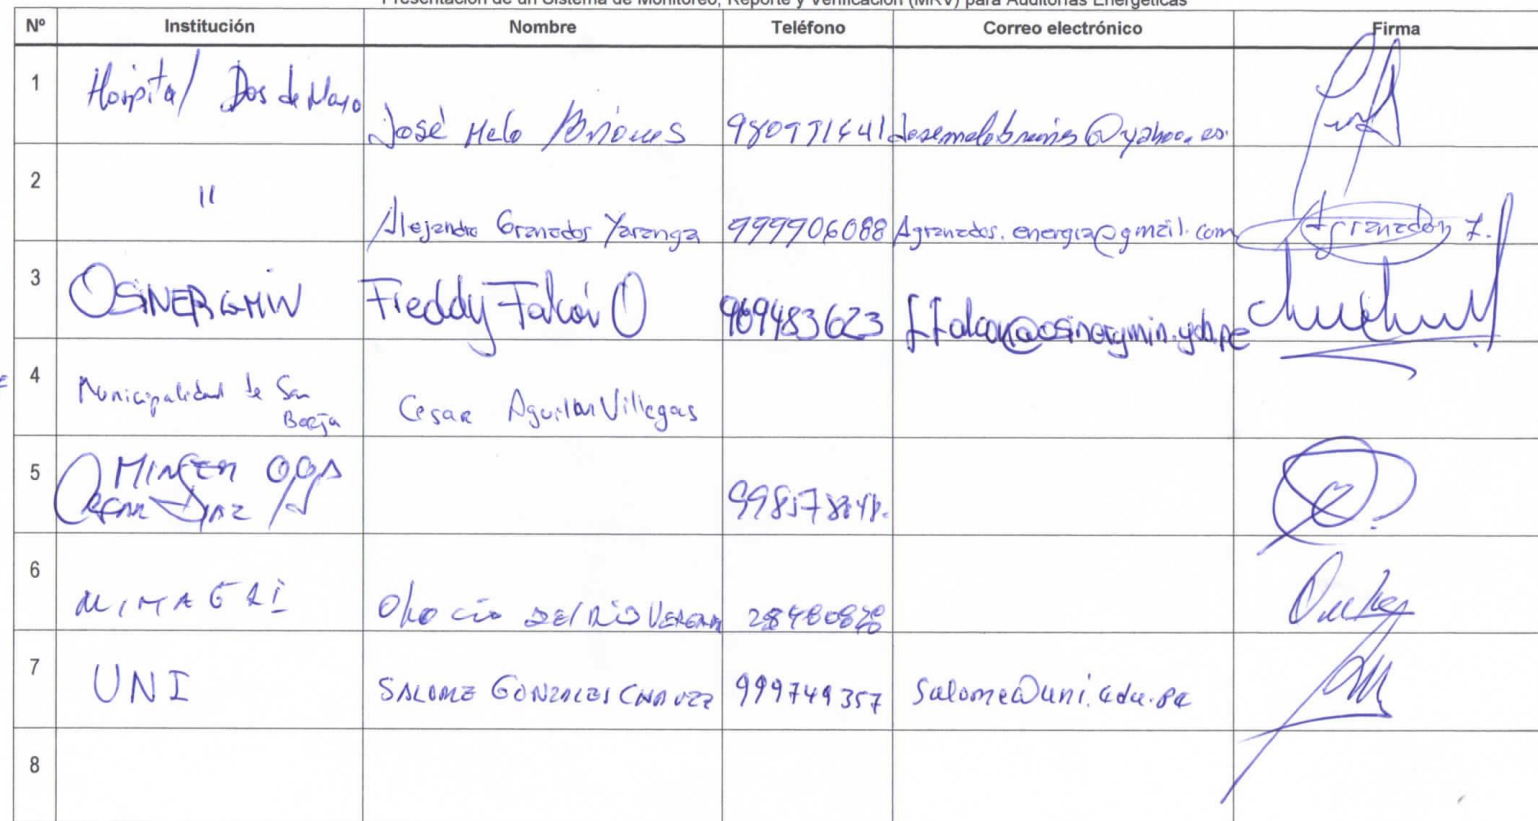 Presentación de un Sistema de Monitoreo, Reporte y Verificación (MRV) para Auditorías Energéticas
Nº Institución Nombre Teléfono Correo electrónico Firma
1 Hospital Dos de Mayo José Melo Briones
2 " Alejandro Granados Yaranga 999906088 Agranados.energia@gmail.com Agranados Y.
3 OSINERGMIN Freddy Falcón O 969483623 ffalcon@osinergmin.gob.pe
4 Municipalidad de San
Borja Cesar Aguilar Villegas
5 MINEM OGA
Cesar Diaz
6 MINAGRI DEL RIO
7 UNI SALOME GONZALES CHAVEZ 999749357 salome@uni.edu.pe
8